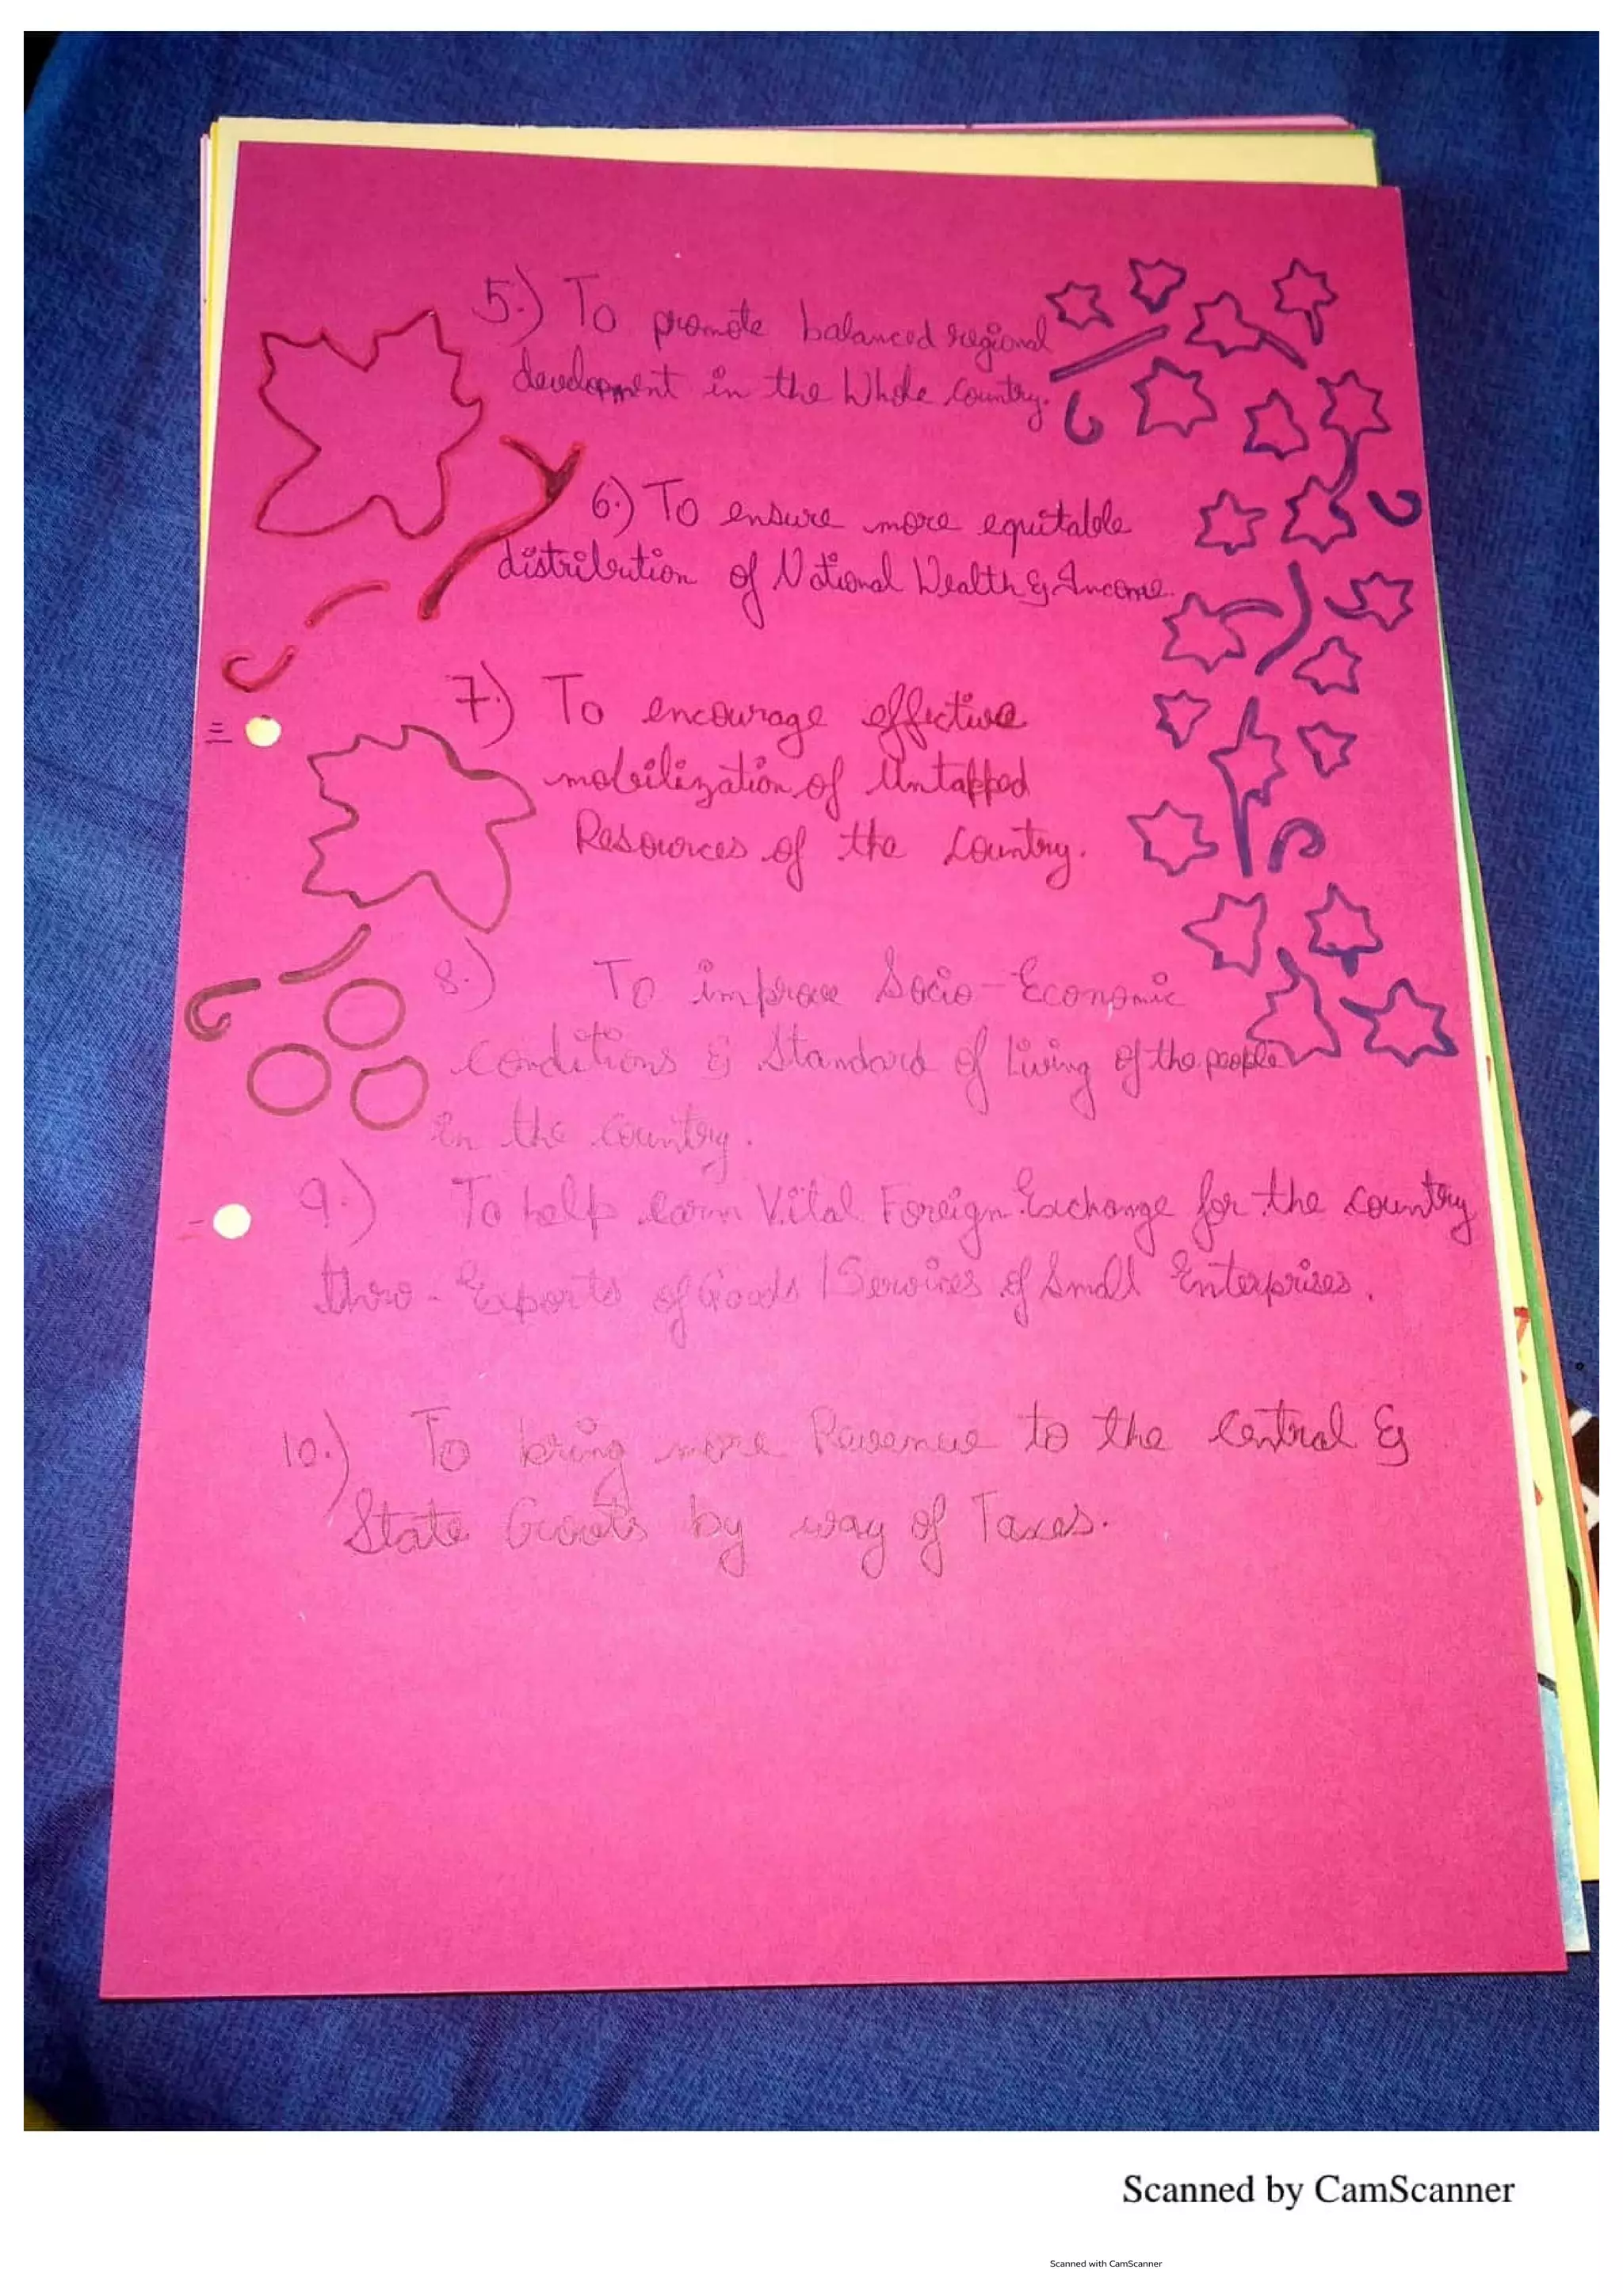 5.) To promote balanced regional
development in the Whole Country.
6.) To ensure more equitable
distribution of National Wealth & Income.
7.) To encourage effective
mobilization of Untapped
Resources of the Country.
8.) To improve Socio-Economic
Conditions & Standard of Living of the people
in the country.
9.) To help earn Vital Foreign Exchange for the country
thro- Exports of Goods / Services of Small Enterprises.
10.) To bring more Revenue to the Central &
State Govts by way of Taxes.
Scanned by CamScanner
Scanned with CamScanner